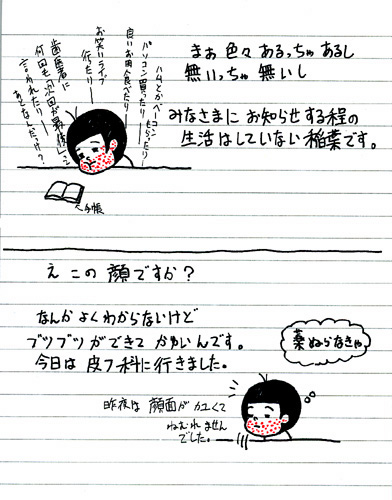 まぁ 色々 あるっちゃ あるし
無いっちゃ 無いし
みなさまに お知らせする程の
生活はしていない稲葉です。
ハムとかベーコン
もらったり
パソコン買ったり
良いお肉食べたり
お笑いライブ
行たり
歯医者に
何回も「次回が最後」と
言われたり
あとなんだっけ?
手帳
え この 顔ですか?
なんか よくわからないけど
ブツブツができて かゆいんです。
今日は 皮フ科に行きました。
薬
ぬらなきゃ
昨夜は 顔面が カユくて
ねむれませんでした。